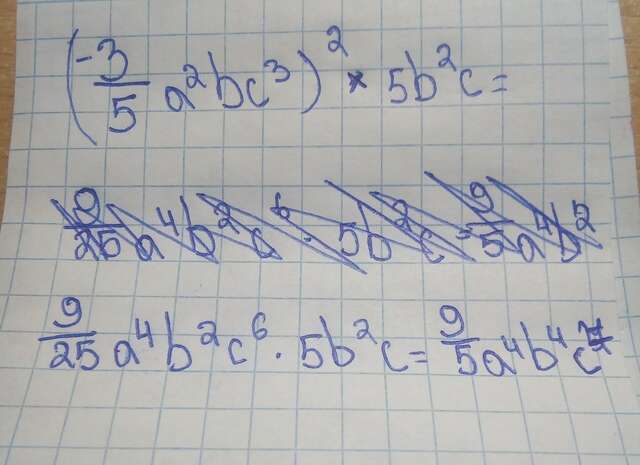 (-3/5 a²bc³)² × 5b²c =
9/25 a⁴b²c⁶ · 5b²c = 9/5 a⁴b²
9/25 a⁴b²c⁶ · 5b²c = 9/5 a⁴b⁴c⁷